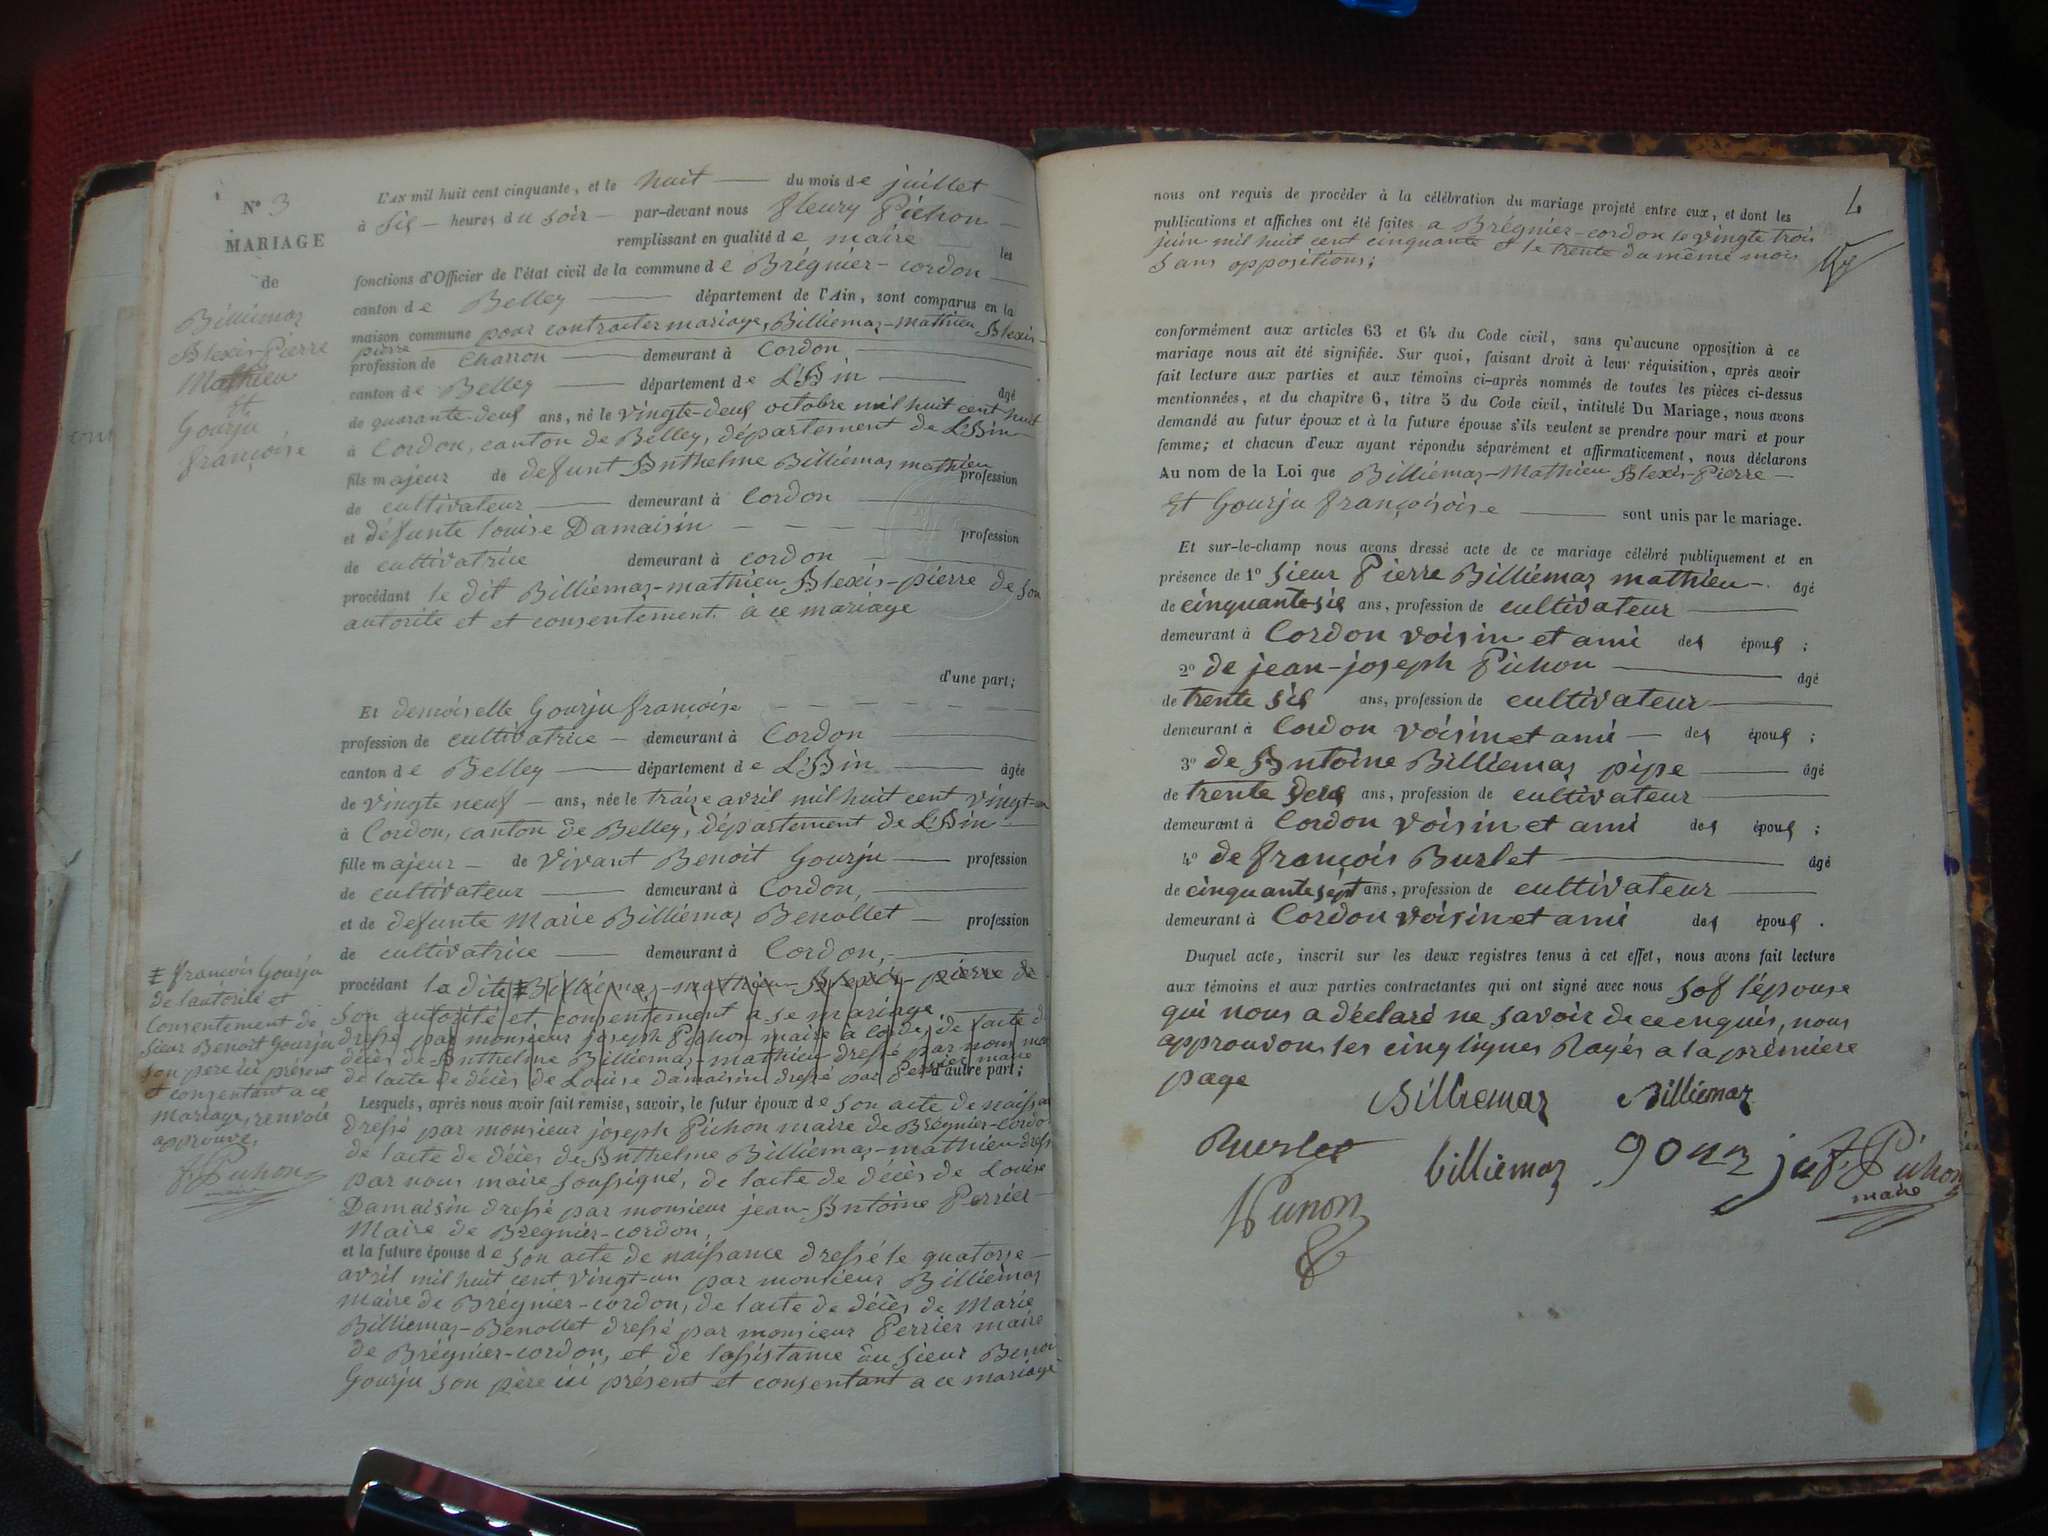 N° 3
MARIAGE
de
Billiemaz
Alexis-Pierre
Mathieu
Et
Gourju
françoise
L'AN mil huit cent cinquante, et le huit du mois de juillet
à sis heures du soir par-devant nous fleury Pichon
remplissant en qualité de maire les
fonctions d'Officier de l'état civil de la commune de Brégnier-cordon
canton de Belley département de l'Ain, sont comparus en la
maison commune pour contracter mariage, Billiemaz-mathieu Alexis-
pierre
profession de Charron demeurant à Cordon
canton de Belley département de L'Ain âgé
de quarante-deus ans, né le vingte-deus octobre mil huit cent huit
à Cordon, canton de Belley, département de L'Ain
fils majeur de defunt Anthelme Billiemaz mathieu profession
de cultivateur demeurant à Cordon
et défunte louise Damaisin profession
de cultivatrice demeurant à cordon
procédant le dit Billiemaz-mathieu Alexis-pierre de son
autorité et et consentement à ce mariage
d'une part;
Et demoiselle Gourju françoise
profession de cultivatrice demeurant à Cordon
canton de Belley département de L'Ain âgée
de vingte neuf ans, née le traize avril mil huit cent vingt-un
à Cordon, canton de Belley, département de L'Ain
fille majeur de vivant Benoit Gourju profession
de cultivateur demeurant à Cordon,
et de defunte Marie Billiemaz Benollet profession
de cultivatrice demeurant à Cordon,
procédant la dite ‡ Billiemaz-mathieu Alexis-pierre de
son autorité et consentement a se mariage
dressé par monsieur joseph Pichon maire a cordon, de l'acte de
décès de Anthelme Billiemaz-mathieu dressé par nous maire
de l'acte de décès de Louise damaisin dressé par Perrier maire
d'autre part;
‡ françois Gourju
de l'autorité et
Consentement de
sieur Benoit Gourju
son père ici présent
et consentant a ce
mariage, renvoie
approuvé,
f. Pichon
maire
Lesquels, après nous avoir fait remise, savoir, le futur époux de son acte de naissance
dressé par monsieur joseph Pichon maire de Brégnier-cordon
de l'acte de décès de Anthelme Billiemaz-mathieu dressé
par nous maire soussigné, de l'acte de décès de Louise
Damaisin dressé par monsieur jean-Antoine Perrier
Maire de Bregnier-cordon,
et la future épouse de son acte de naissance dressé le quatorse
avril mil huit cent vingt-un par monsieur Billiemaz
maire de Brégnier-cordon, de l'acte de décès de Marie
Billiemaz-Benollet dressé par monsieur Perrier maire
de Brégnier-cordon, et de l'assistance du sieur Benoit
Gourju son père ici présent et consentant a ce mariage
4
nous ont requis de procéder à la célébration du mariage projeté entre eux, et dont les
publications et affiches ont été faites a Brégnier-cordon le vingte trois
juin mil huit cent cinquante et le trente du même mois
sans oppositions;
conformément aux articles 63 et 64 du Code civil, sans qu'aucune opposition à ce
mariage nous ait été signifiée. Sur quoi, faisant droit à leur réquisition, après avoir
fait lecture aux parties et aux témoins ci-après nommés de toutes les pièces ci-dessus
mentionnées, et du chapitre 6, titre 5 du Code civil, intitulé Du Mariage, nous avons
demandé au futur époux et à la future épouse s'ils veulent se prendre pour mari et pour
femme; et chacun d'eux ayant répondu séparément et affirmativement, nous déclarons
Au nom de la Loi que Billiemaz-Mathieu Alexis-Pierre
Et Gourju françoisoise sont unis par le mariage.
Et sur-le-champ nous avons dressé acte de ce mariage célébré publiquement et en
présence de 1° sieur Pierre Billiemaz mathieu âgé
de cinquante-sis ans, profession de cultivateur
demeurant à Cordon voisin et ami des épous ;
2° de jean-joseph Pichon âgé
de trente sis ans, profession de cultivateur
demeurant à Cordon voisin et ami des épous ;
3° de Antoine Billiemaz pipe âgé
de trente deus ans, profession de cultivateur
demeurant à Cordon voisin et ami des épous ;
4° de françois Burlet âgé
de cinquante sept ans, profession de cultivateur
demeurant à Cordon voisin et ami des épous .
Duquel acte, inscrit sur les deux registres tenus à cet effet, nous avons fait lecture
aux témoins et aux parties contractantes qui ont signé avec nous sof l'épouse
qui nous a déclaré ne savoir de ce enquis, nous
approuvons les cinq lignes Rayés a la prémiere
page
Billiemaz Billiemaz
Burlet billiemaz gourju f. Pichon
maire